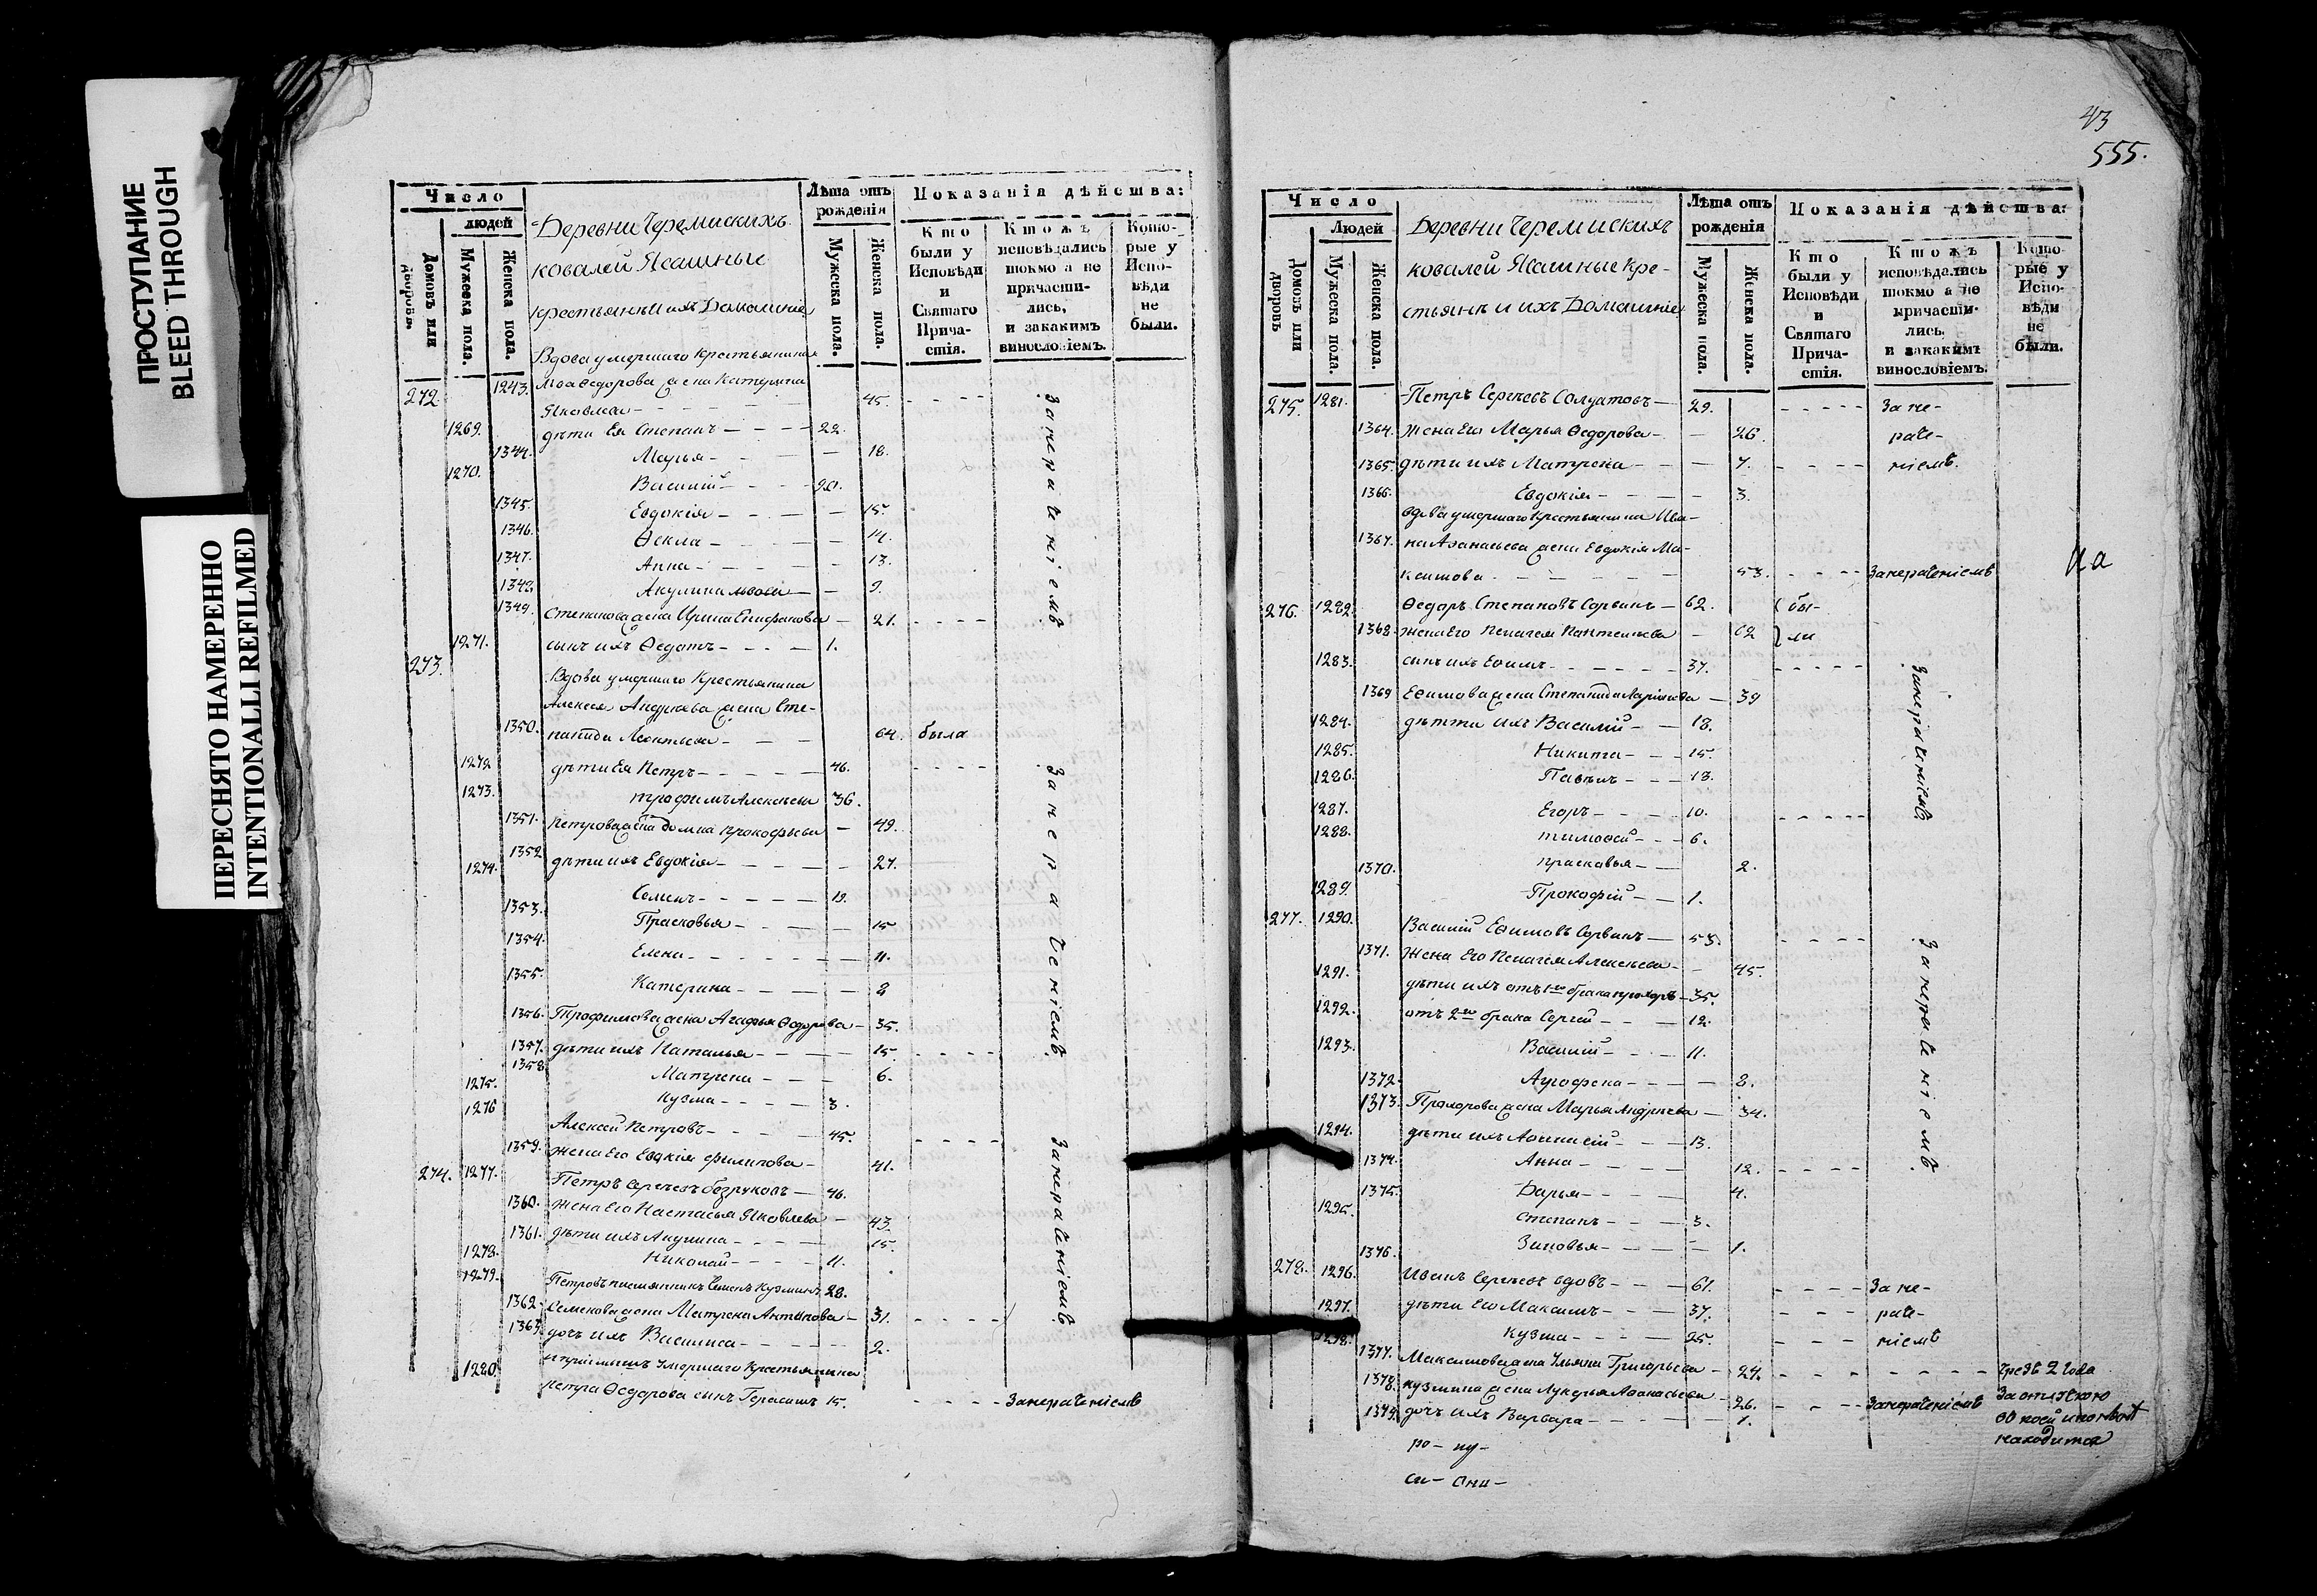 ПРОСТУПАНИЕ
BLEED THROUGH
ПЕРЕСНЯТО НАМЕРЕННО
INTENTIONALLI REFILMED
Число
людей
Домовъ или дворовъ
Мужеска пола.
Женска пола.
Деревни Черемискихъ
ковалей Ясашные
крестьянъ и ихъ Домашние
Лѣта отъ рожденія
Мужеска пола.
Женска пола.
Показанія дѣйства:
Кто были у Исповѣди и Святаго Причастія.
Ктожъ исповѣдались токмо а не причастились, и закакимъ винословіемъ.
Которые у Исповѣди не были.
Вдова умершаго крестьянина
272 1243. Федорова жена Катерина
Яковлева 45.
1269. дѣти Ея Степанъ 22.
1344. Марья 18.
1270. Василій 20.
1345. Евдокія 15.
1346. Ѳекла 14.
1347. Анна 13.
1348. Акулина 9.
1349. Степанова жена Ирина Епифанова 21.
1271. сынъ ихъ Ѳедотъ 1.
Занераченіемъ
273. Вдова умершаго Крестьянина
Алексея Андреева жена Сте-
1350. панида Леонтьева 64. была
1272 дѣти Ея Петръ 46.
1273. трофимъ Алексеевы 36.
1351. Петрова жена домна прокофьева 49.
1352 дѣти ихъ Евдокія 27.
1274. Семенъ 19.
1353. Прасковья 15
1354. Елена 11.
1355. Катерина 8
1356. Трофимова жена Агафья Ѳедорова 35.
1357. дѣти ихъ Наталья 15.
1358 Матрена 6.
1275. Кузма 3.
Занераченіемъ
1276 Алексей Петровъ 45.
1359. жена Его Евдокія филипова 41.
274. 1277. Петръ Сергеевъ безруковъ 46.
1360. жена Его Настасья Яковлева 43.
1361. дѣти ихъ Акулина 15.
1278. Николай 11.
1279. Петровъ племянникъ Семенъ Кузминъ 28.
1362. Семенова жена Матрена Антипова 31.
1363. дочь ихъ Василиса 2.
Занераченіемъ
1280. умершаго Крестьянина
петра Ѳедорова сынъ Герасимъ 15. Занераченіемъ
43
555.
Число
Людей
Домовъ или дворовъ
Мужеска пола.
Женска пола.
Деревни Черемискихъ
ковалей Ясашные кре-
стьянъ и ихъ Домашние
Лѣта отъ рожденія
Мужеска пола.
Женска пола.
Показанія дѣйства:
Кто были у Исповѣди и Святаго Причастія.
Ктожъ исповѣдались токмо а не причастились, и закакимъ винословіемъ.
Которые у Исповѣди не были.
275. 1281. Петръ Сергеевъ Солдатовъ 29. Зане-
1364. жена Его Марья Ѳедорова 26. раче-
1365. дѣти ихъ Матрена 7. ніемъ.
1366. Евдокія 3.
вдова умершаго крестьянина Ива-
1367. на Аѳанасьева жена Евдокія Ма-
ксимова 53. Занераченіемъ
на
276. 1282. Ѳедоръ Степановъ Сорвинъ 62. бы-
1368. жена Его Пелагея Пантелеева 62 ли
1283. сынъ ихъ Еѳимъ 37.
1369 Еѳимова жена Степанида Ларіонова 39
1284. дѣтти ихъ Василій 18.
1285. Никита 15.
1286. Павелъ 13.
1287. Егоръ 10.
1288. тимоѳей 6.
1370. прасковья 2.
1289. Прокофій 1.
Занераченіемъ
277. 1290. Василій Еѳимовъ Сорвинъ 53.
1371. Жена Его Пелагея Алексеева 45.
1291. дѣти ихъ отъ 1го брака прохоръ 35.
1292. отъ 2го брака Сергей 12.
1293. Василій 11.
1372. Агрофена 8.
1373. Прохорова жена Марья Андреева 34.
1294. дѣти ихъ Аѳанасій 13.
1374. Анна 12.
1375. Дарья 4.
1295. степанъ 3.
1376. Зиновья 1.
Занераченіемъ
278. 1296. Иванъ Сергеевъ вдовъ 61. Зане-
1297. дѣти Его Максимъ 37. раче-
1298. Кузма 25. ніемъ
1377. Максимова жена Ульяна Григорьева 27. чрезъ 2 года
1378. кузмина жена Лукерья Аѳанасьева 26. Занераченіемъ За отлучкою
1379. дочь ихъ Варвара 1.
находится